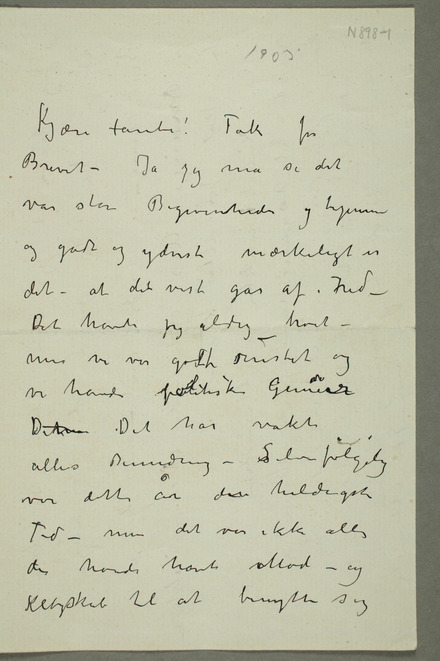 N898-1
1905
Kjære tante! Tak for
Brevet – Ja jeg må si det
var store Begivenheder og hjemme
og godt og yderst mærkeligt er
det – at det vist gås af i Fred –
Det havde jeg aldrig troet –
men vi var godt rustet og
vi havde politiske Genier
Det har vakt
alles Beundring – Selvfølgelig
var dette år den heldigste
Tid – men det var ikke alle
der havde havt Mod – og
Klogskab til at benytte sig